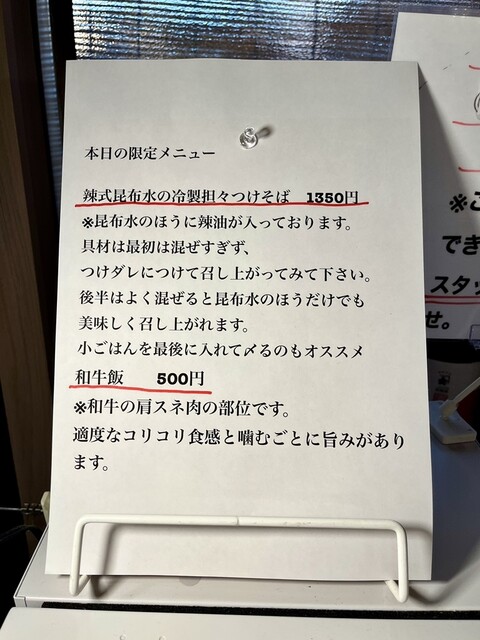 本日の限定メニュー
辣式昆布水の冷製担々つけそば　1350円
※昆布水のほうに辣油が入っております。
具材は最初は混ぜすぎず、
つけダレにつけて召し上がってみて下さい。
後半はよく混ぜると昆布水のほうだけでも
美味しく召し上がれます。
小ごはんを最後に入れて〆るのもオススメ
和牛飯　　500円
※和牛の肩スネ肉の部位です。
適度なコリコリ食感と噛むごとに旨みがあり
ます。
※こ
でき
スタッ
せ。